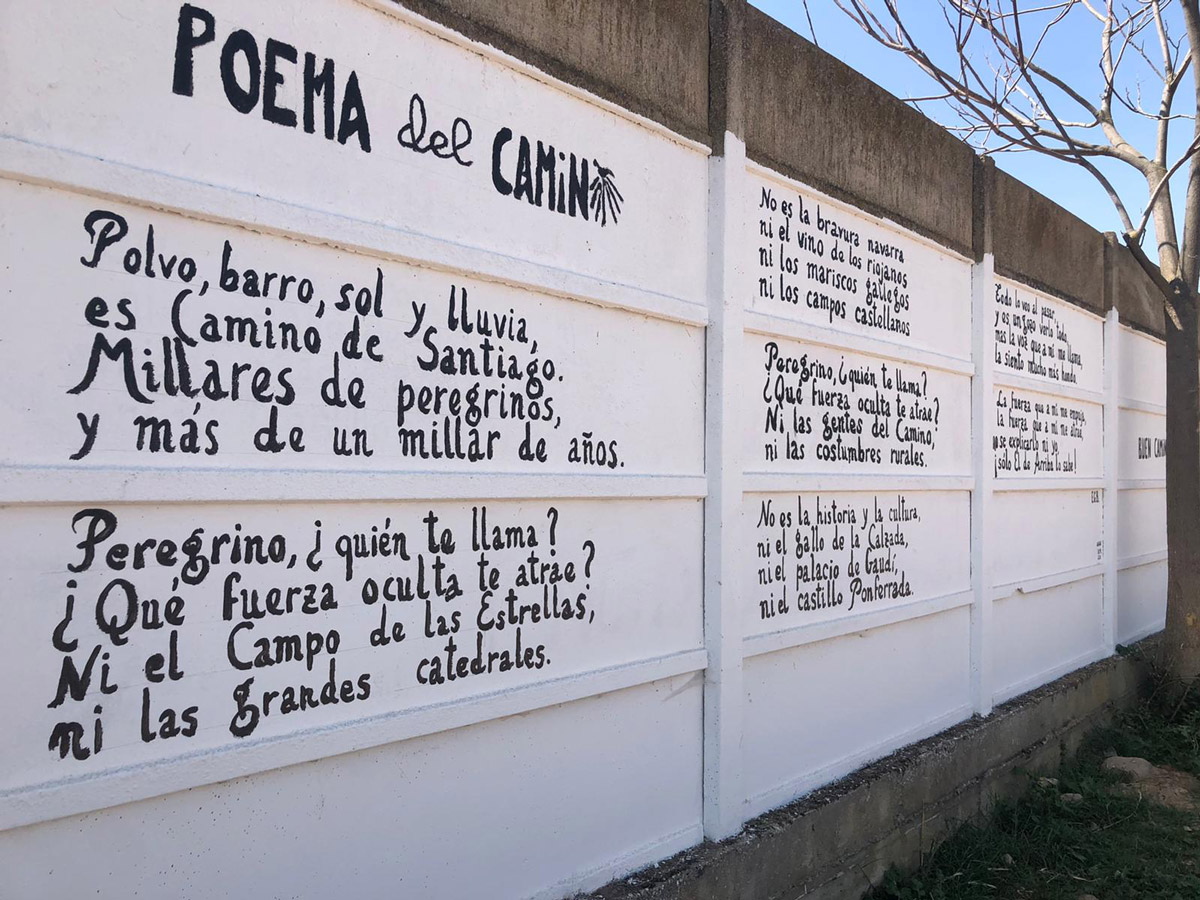 POEMA del CAMiN
Polvo, barro, sol y lluvia,
es Camino de Santiago.
Millares de peregrinos,
y más de un millar de años.
Peregrino, ¿quién te llama?
¿Qué fuerza oculta te atrae?
Ni el Campo de las Estrellas,
ni las grandes catedrales.
No es la bravura navarra
ni el vino de los riojanos
ni los mariscos gallegos
ni los campos castellanos
Peregrino, ¿quién te llama?
¿Qué fuerza oculta te atrae?
Ni las gentes del Camino,
ni las costumbres rurales.
No es la historia y la cultura,
ni el gallo de la Calzada,
ni el palacio de Gaudí,
ni el castillo Ponferrada.
Todo lo veo al pasar
y es un gozo verlo todo,
mas la voz que a mí me llama,
la siento mucho más honda.
La fuerza que a mí me empuja,
la fuerza que a mí me atrae,
no se explicarla ni yo
¡sólo El de Arriba lo sabe!
E.G.B.
BUEN CAMIN